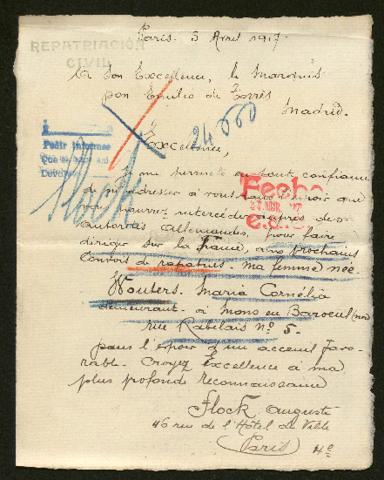 REPATRIACION
CIVIL
Paris. 3 Avril 1917.
A Son Excellence, le Marquis
Don Emilio de Torrès
Madrid.
24000
Pedir informes
Excellence,
Je me permets en tout confiance
de m'adresser à vous dans l'espoir que
Fecha
vous pourrez intercéder auprès des
27 ABR. '17
autorités allemandes, pour faire
Flock
diriger sur la France, aux prochains
convois de rapatriés ma femme née
Wouters. Maria Cornélia
demeurant à Mons en Baroeul (Nord)
rue Rabelais Nº 5.
dans l'espoir d'un acceuil favo-
rable. Croyez Excellence à ma
plus profonde reconnaissance
Flock Auguste
46 rue de l'Hôtel de Ville
Paris 4e